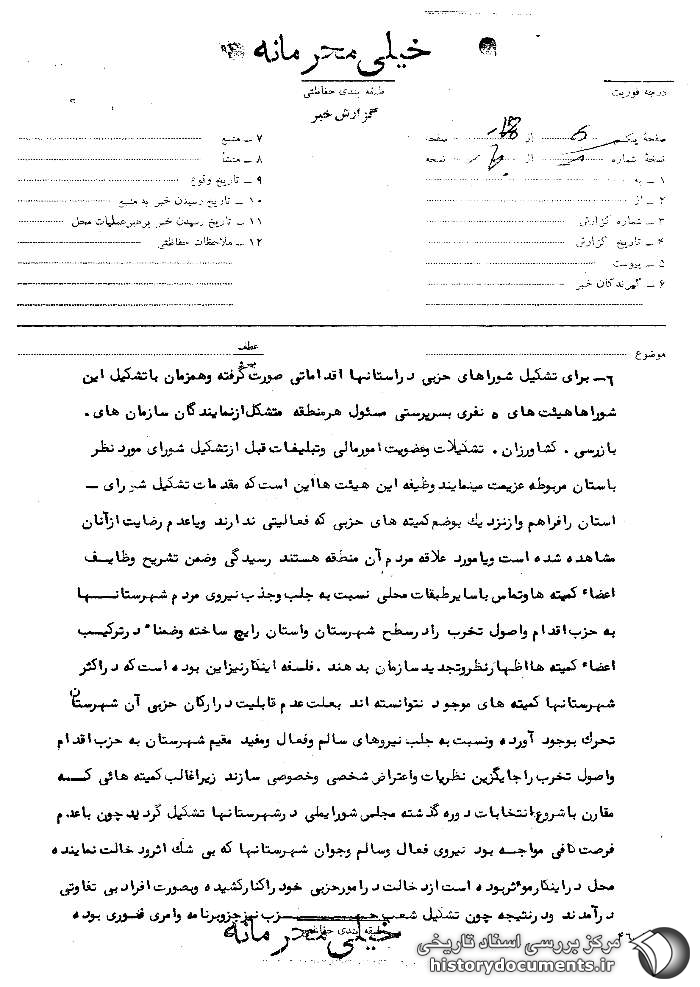 خیلی محرمانه
درجه فوریت
طبقه بندی حفاظتی
گزارش خبر
صفحه یکم از صفحه
نسخه شماره از نسخه
۱ ـ به
۲ ـ از
۳ ـ شماره گزارش
۴ ـ تاریخ گزارش
۵ ـ پیوست
۶ ـ گیرندگان خبر
۷ ـ منبع
۸ ـ منشأ
۹ ـ تاریخ وقوع
۱۰ ـ تاریخ رسیدن خبر به منبع
۱۱ ـ تاریخ رسیدن خبر برهبر عملیات محل
۱۲ ـ ملاحظات حفاظتی
موضوع
عطف
پیرو
۶ـ برای تشکیل شوراهای حزبی در استانها اقداماتی صورت گرفته وهمزمان با تشکیل این
شوراها هیئت های ۵ نفری بسرپرستی مسئول هر منطقه متشکل از نمایندگان سازمان های .
بازرسی . کشاورزان . تشکیلات وعضویت امور مالی وتبلیغات قبل از تشکیل شورای مورد نظر
باستان مربوطه عزیمت مینمایند وظیفه این هیئت ها این است که مقدمات تشکیل شورای ـ
استان را فراهم واز نزدیك بوضع کمیته های حزبی که فعالیتی ندارند ویا عدم رضایت از آنان
مشاهده شده است ویا مورد علاقه مردم آن منطقه هستند رسیدگی وضمن تشریح وظایف
اعضاء کمیته ها وتماس با سایر طبقات محلی نسبت به جلب وجذب نیروی مردم شهرستانها
به حزب اقدام واصول تحزب را در سطح شهرستان واستان رایج ساخته وضمناً در ترکیب
اعضاء کمیته ها اظهار نظر وتجدید سازمان بدهند . فلسفه اینکار نیز این بوده است که در اکثر
شهرستانها کمیته های موجود نتوانسته اند بعلت عدم قابلیت در ارکان حزبی آن شهرستان
تحرك بوجود آورده ونسبت به جلب نیروهای سالم وفعال ومفید مقیم شهرستان به حزب اقدام
واصول تحزب را جایگزین نظریات واعتراض شخصی وخصوصی سازند زیرا غالب کمیته هائی که
مقارن با شروع انتخابات دوره گذشته مجلس شورایملی در شهرستانها تشکیل گردید چون با عدم
فرصت کافی مواجه بود نیروی فعال وسالم وجوان شهرستانها که بی شك اثرود خالت نماینده
محل در اینکار موثر بوده است از دخالت در امور حزبی خود را کنار کشیده وبصورت افراد بی تفاوتی
در آمدند ودر نتیجه چون تشکیل شعب حزب نیز جزو برنامه وامری فوری بوده
طبقه بندی حفاظتی
خیلی محرمانه
مرکز بررسی اسناد تاریخی
historydocuments.ir